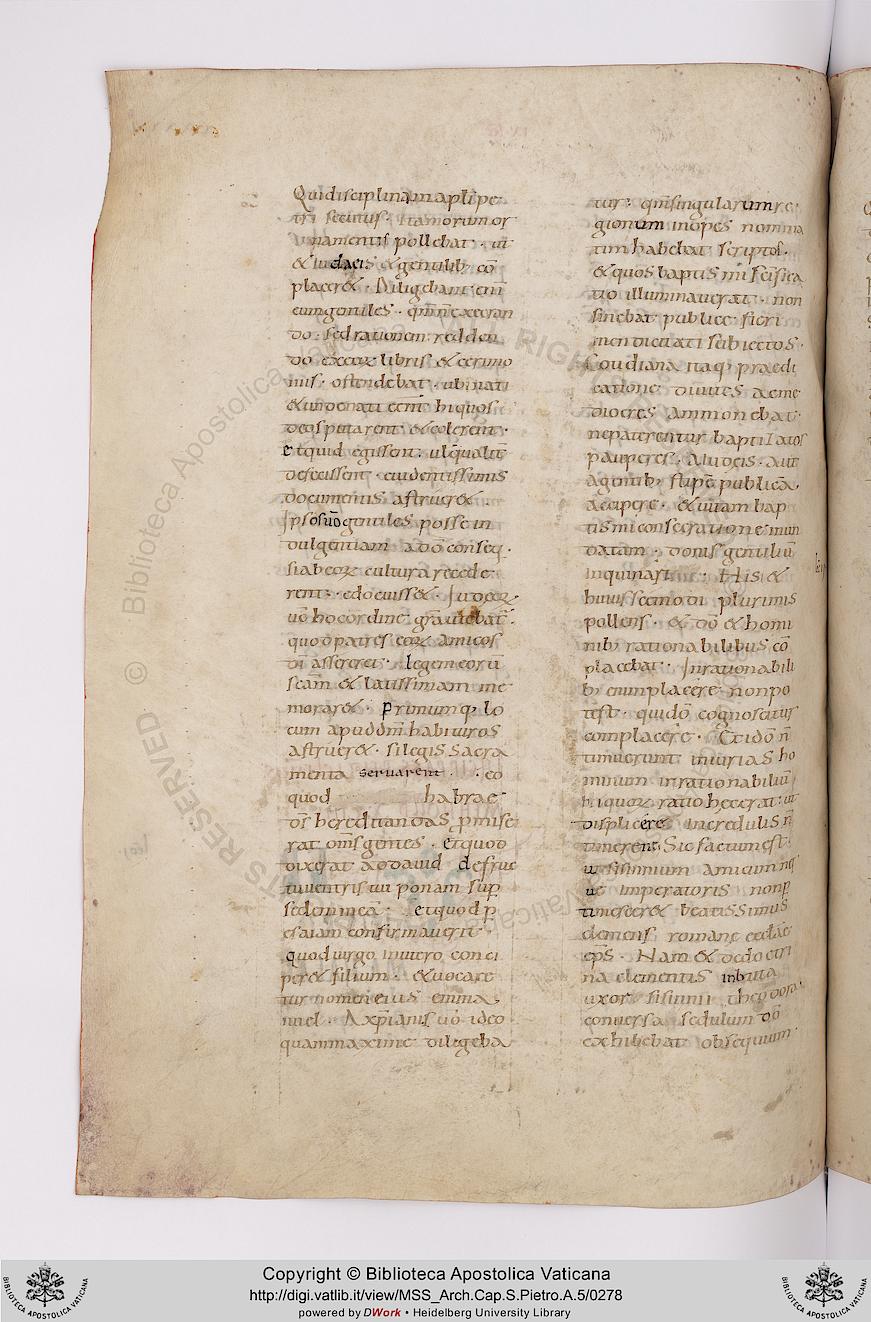 Qui disciplinam apłi pe
tri secutus · ita morum or
namentis pollebat · ut
& iudaeis & gentilib; cō
placer& · Diligebant enī
eum gentiles · qm̄ n̄ execran
do · sed rationem redden
do ex eoꝝ libris & cerimo
niis · ostendebat · ubi nati
& unde nati eēnt hi quos
deos putarent & colerent ·
etquid egissent · ul̄ qualit̄
defecissent · euidentissimis
documentis astruer& ·
Ipsos uō gentiles posse in
dulgentiam a dō conseq ·
si ab eoꝝ cultura recede
rent · edocuiss& · Iudaeoꝝ
uō hoc ordine · gr̄a utebat̄ ·
quod patres eoꝝ amicos
dī assereret · legem eorū
scām & latissimam me
morar& · Primumq; lo
cum apud dm̄ habituros
astruer& · si legis sacra
menta servarent · eo
quod habrae
oꝛ hereditandas pmise
rat om̄s gentes · etquod
dixerat ad dauid de fruc
tu uentris tui ponam sup̄
sedem meā · etquod p
esaiam confirmauerit ·
quod uirgo in utero conci
per& filium · & uocare
tur nomen eius emma
nuel · A xp̄ianis uō ideo
quam maxime diligeba
tur · qm̄ singularum re
gionum inopes nomina
tim habebat scriptos ·
& quos baptismi scīfica
tio illuminauerat · non
sinebat publice fieri
mendicitati subiectos ·
Cotidiana itaq; praedi
catione diuites ac me
diocres ammonebat ·
ne paterentur baptizatos
pauperes · A iudeis · aut
a gentib; stipē publicā
accipere · & uitam bap
tismi consecratione mun
datam · donis gentiliū
inquinari · His &
huiuscemodi plurimis
pollens · & dō & homi
nib; rationabilibus cō
placebat · Inrationabili
b; enim placere non po
test · qui dō cognoscitur
complacere · Et ido n̄
timuerunt iniurias ho
minum inrationabiliū
hi quoꝝ ratio hec erat · ut
displicere incredulis n̄
timerent · Sic factum est ·
ut sisinnium amicum ner
uae imperatoris non p
timescer& beatissimus
clemens romane eccłae
ep̄s · Nam & dedoctri
na clementis inbuta
uxor sisinnii theodora
conuersa sedulum dō
exhibebat obsequium ·
Copyright © Biblioteca Apostolica Vaticana
http://digi.vatlib.it/view/MSS_Arch.Cap.S.Pietro.A.5/0278
powered by DWork • Heidelberg University Library